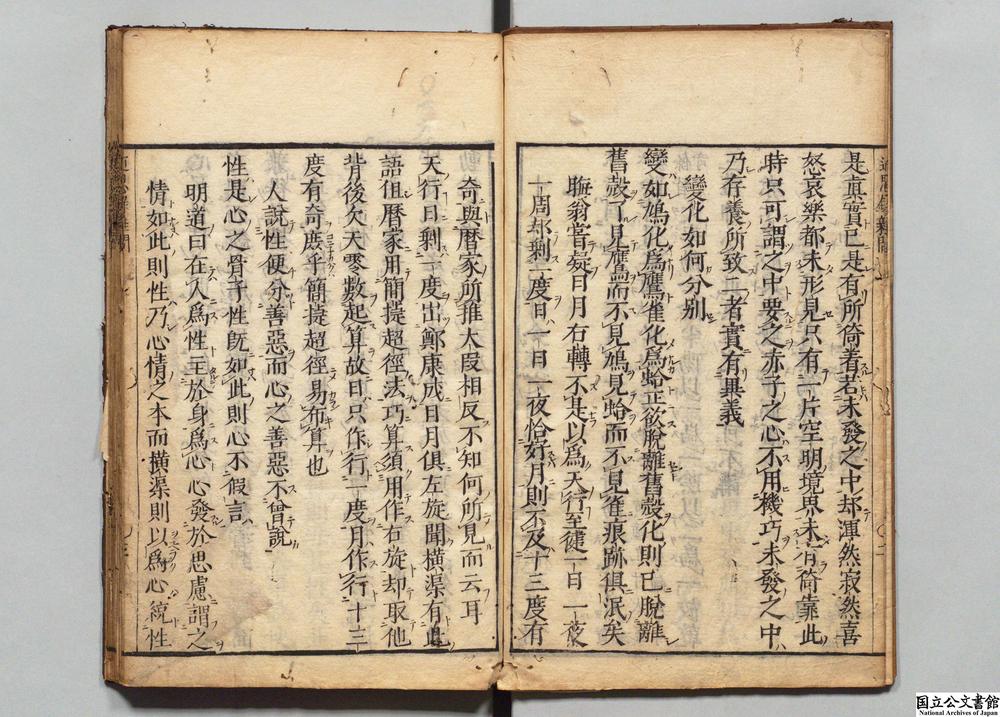 是眞實已是有所倚著若未發之中却渾然寂然喜
怒哀樂都未形見只有一片空明境界未有倚靠此
時只可謂之中要之赤子之心不用機巧未發之中
乃存養所致二者實有異義
變化如何分別
變如鳩化爲鷹雀化爲蛤正欲脫離舊殼化則已脫離
舊殼了見鷹而不見鳩見蛤而不見雀痕跡俱泯矣
晦翁嘗疑日月右轉不是以爲天行至徤一日一夜
一周却剰一度日一日一夜恰好月則不及十三度有
奇與曆家所推大段相反不知何所見而云耳
天行日剰一度出鄭康成日月俱左旋聞橫渠有此
語但曆家用簡㨗超徑法巧算須用作右旋却取他
背後欠天零數起算故日只作行一度月作行十三
度有奇庶乎簡㨗超徑易布算也
人說性便分善惡而心之善惡不曾說
性是心之骨子性旣如此則心不假言
明道曰在人爲性主於身爲心心發於思慮謂之
情如此則性乃心情之本而橫渠則以爲心統性
国立公文書館
National Archives of Japan